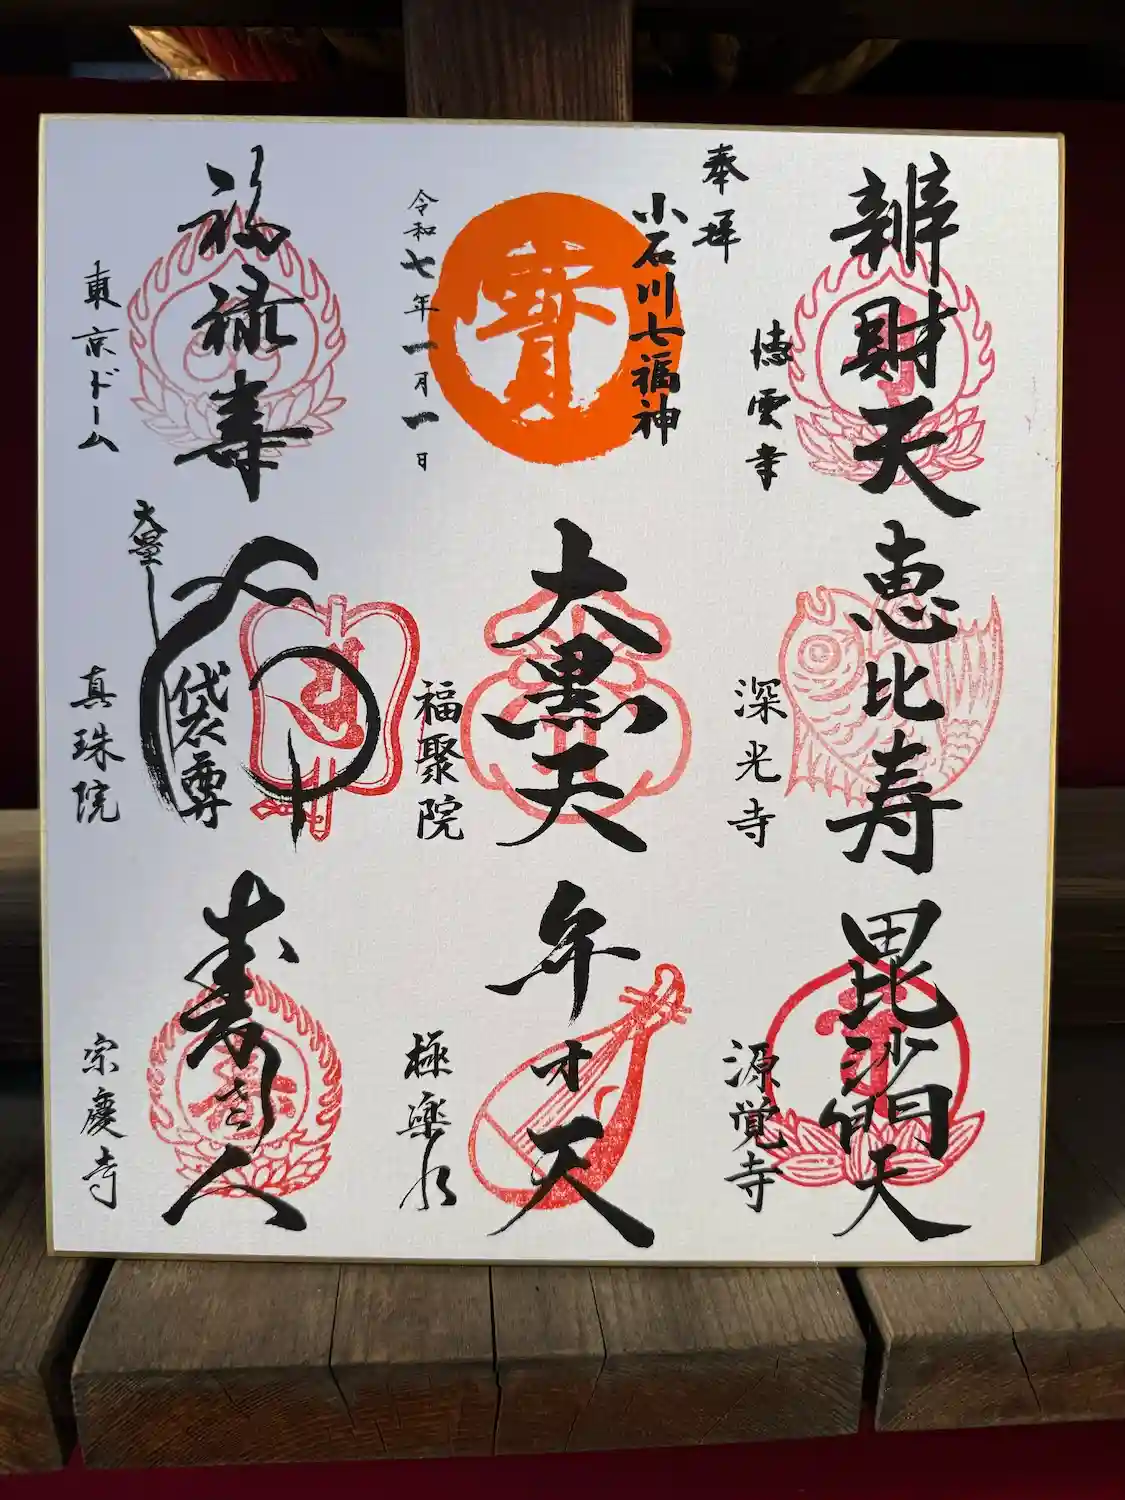 奉拝
辨財天
徳雲寺
小石川七福神
寳
令和七年一月一日
福禄寿
東京ドーム
恵比寿
深光寺
大黒天
福聚院
布袋尊
真珠院
毘沙門天
源覚寺
弁才天
極楽水
寿老人
宗慶寺